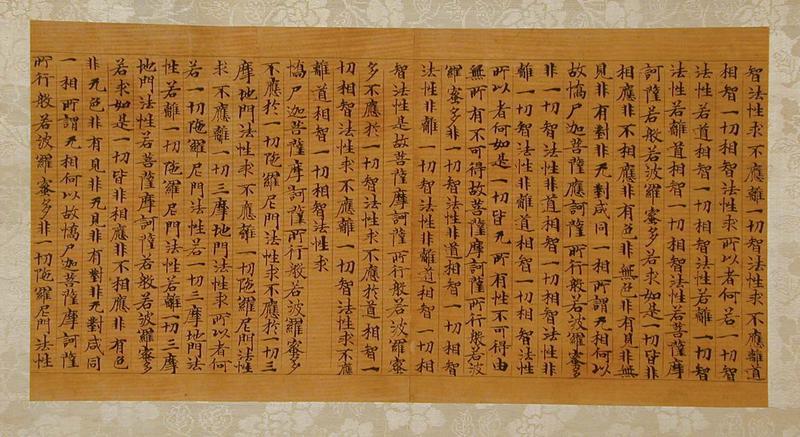 智法性求不應離一切智法性求不應離道
相智一切相智法性求所以者何若一切智
法性若道相智一切相智法性若離一切智
法性若離道相智一切相智法性若菩薩摩
訶薩若般若波羅蜜多若求如是一切皆非
相應非不相應非有色非無色非有見非無
見非有對非无對咸同一相所謂无相何以
故憍尸迦菩薩摩訶薩所行般若波羅蜜多
非一切智法性非道相智一切相智法性非
離一切智法性非離道相智一切相智法性
所以者何如是一切皆无所有性不可得由
無所有不可得故菩薩摩訶薩所行般若波
羅蜜多非一切智法性非道相智一切相智
法性非離一切智法性非離道相智一切相
智法性是故菩薩摩訶薩所行般若波羅蜜
多不應於一切智法性求不應於道相智一
切相智法性求不應離一切智法性求不應
離道相智一切相智法性求
憍尸迦菩薩摩訶薩所行般若波羅蜜多
不應於一切陁羅尼門法性求不應於一切三
摩地門法性求不應離一切陁羅尼門法性
求不應離一切三摩地門法性求所以者何
若一切陁羅尼門法性若一切三摩地門法
性若離一切陁羅尼門法性若離一切三摩
地門法性若菩薩摩訶薩若般若波羅蜜多
若求如是一切皆非相應非不相應非有色
非无色非有見非无見非有對非无對咸同
一相所謂无相何以故憍尸迦菩薩摩訶薩
所行般若波羅蜜多非一切陁羅尼門法性